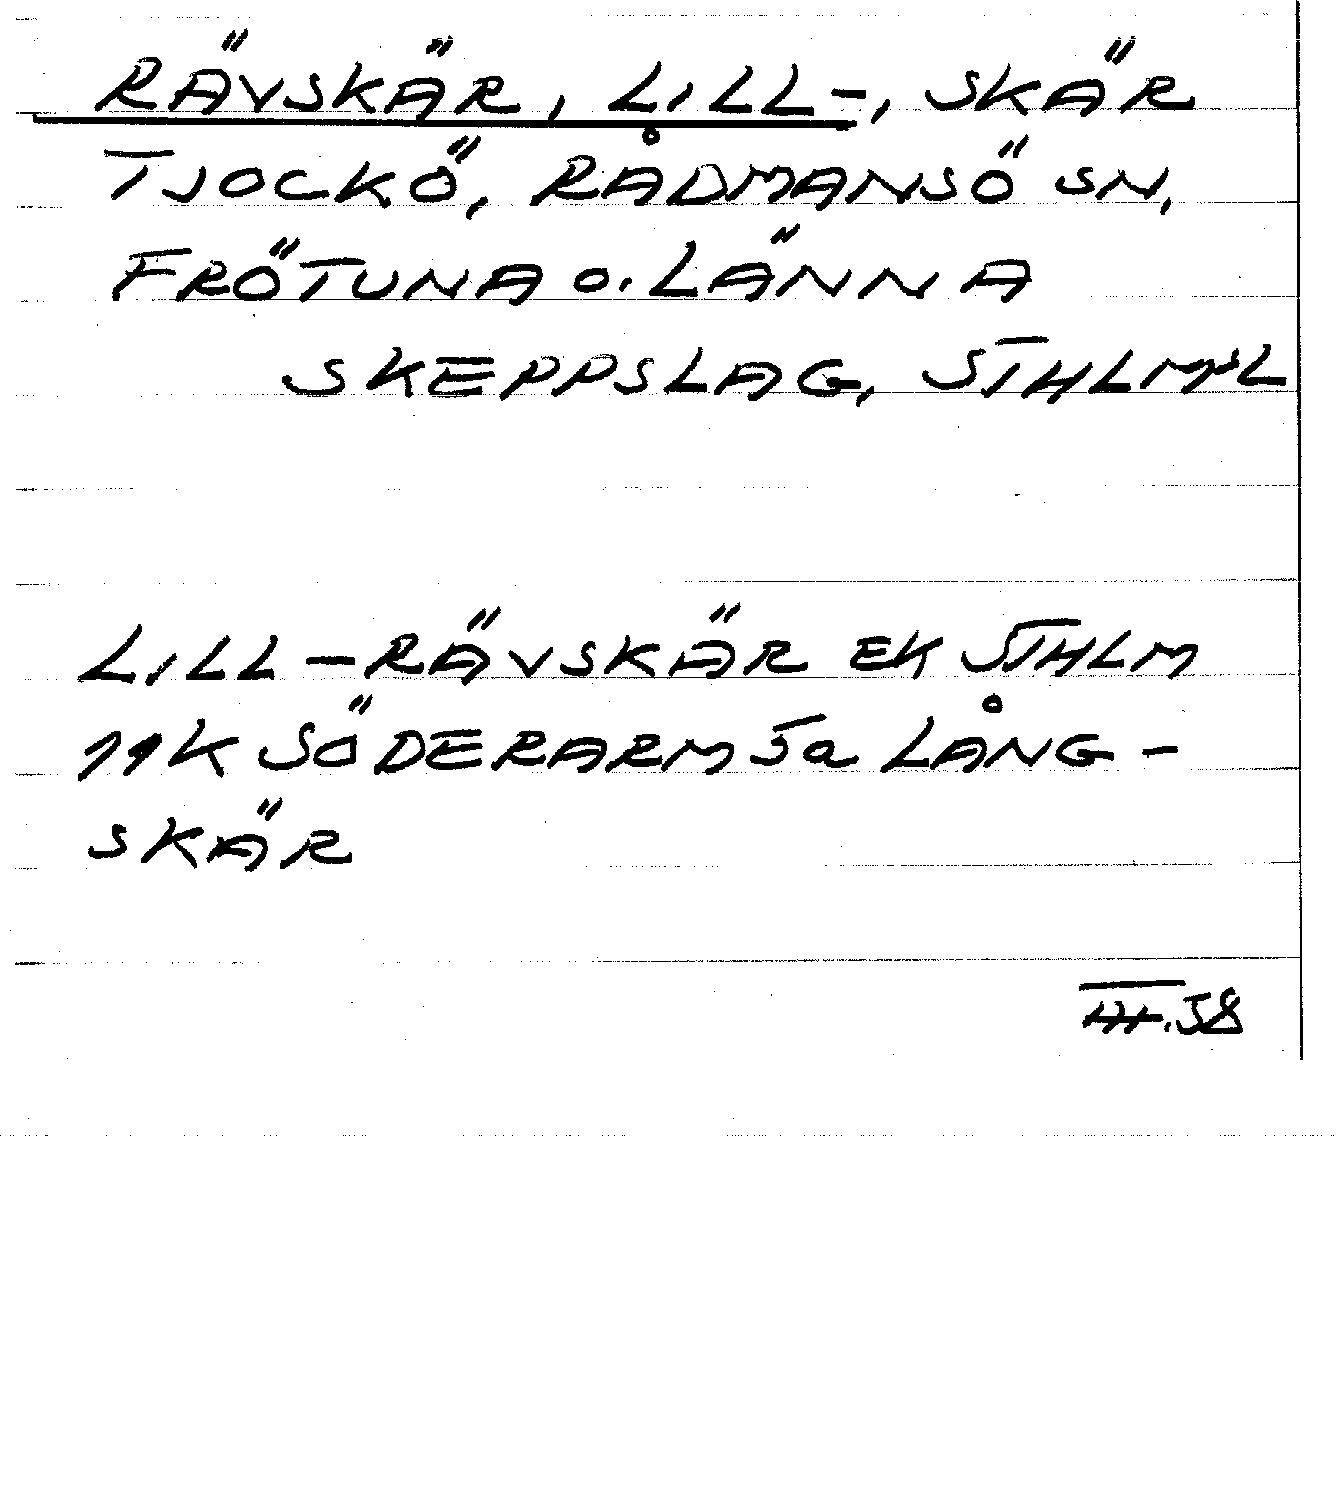 RÄVSKÄR, LILL-, SKÄR
TJOCKÖ, RÅDMANSÖ SN,
FRÖTUNA O. LÄNNA
SKEPPSLAG, STHLMSL
LILL-RÄVSKÄR EK STHLM
11K SÖDERARM 5a LÅNG-
SKÄR